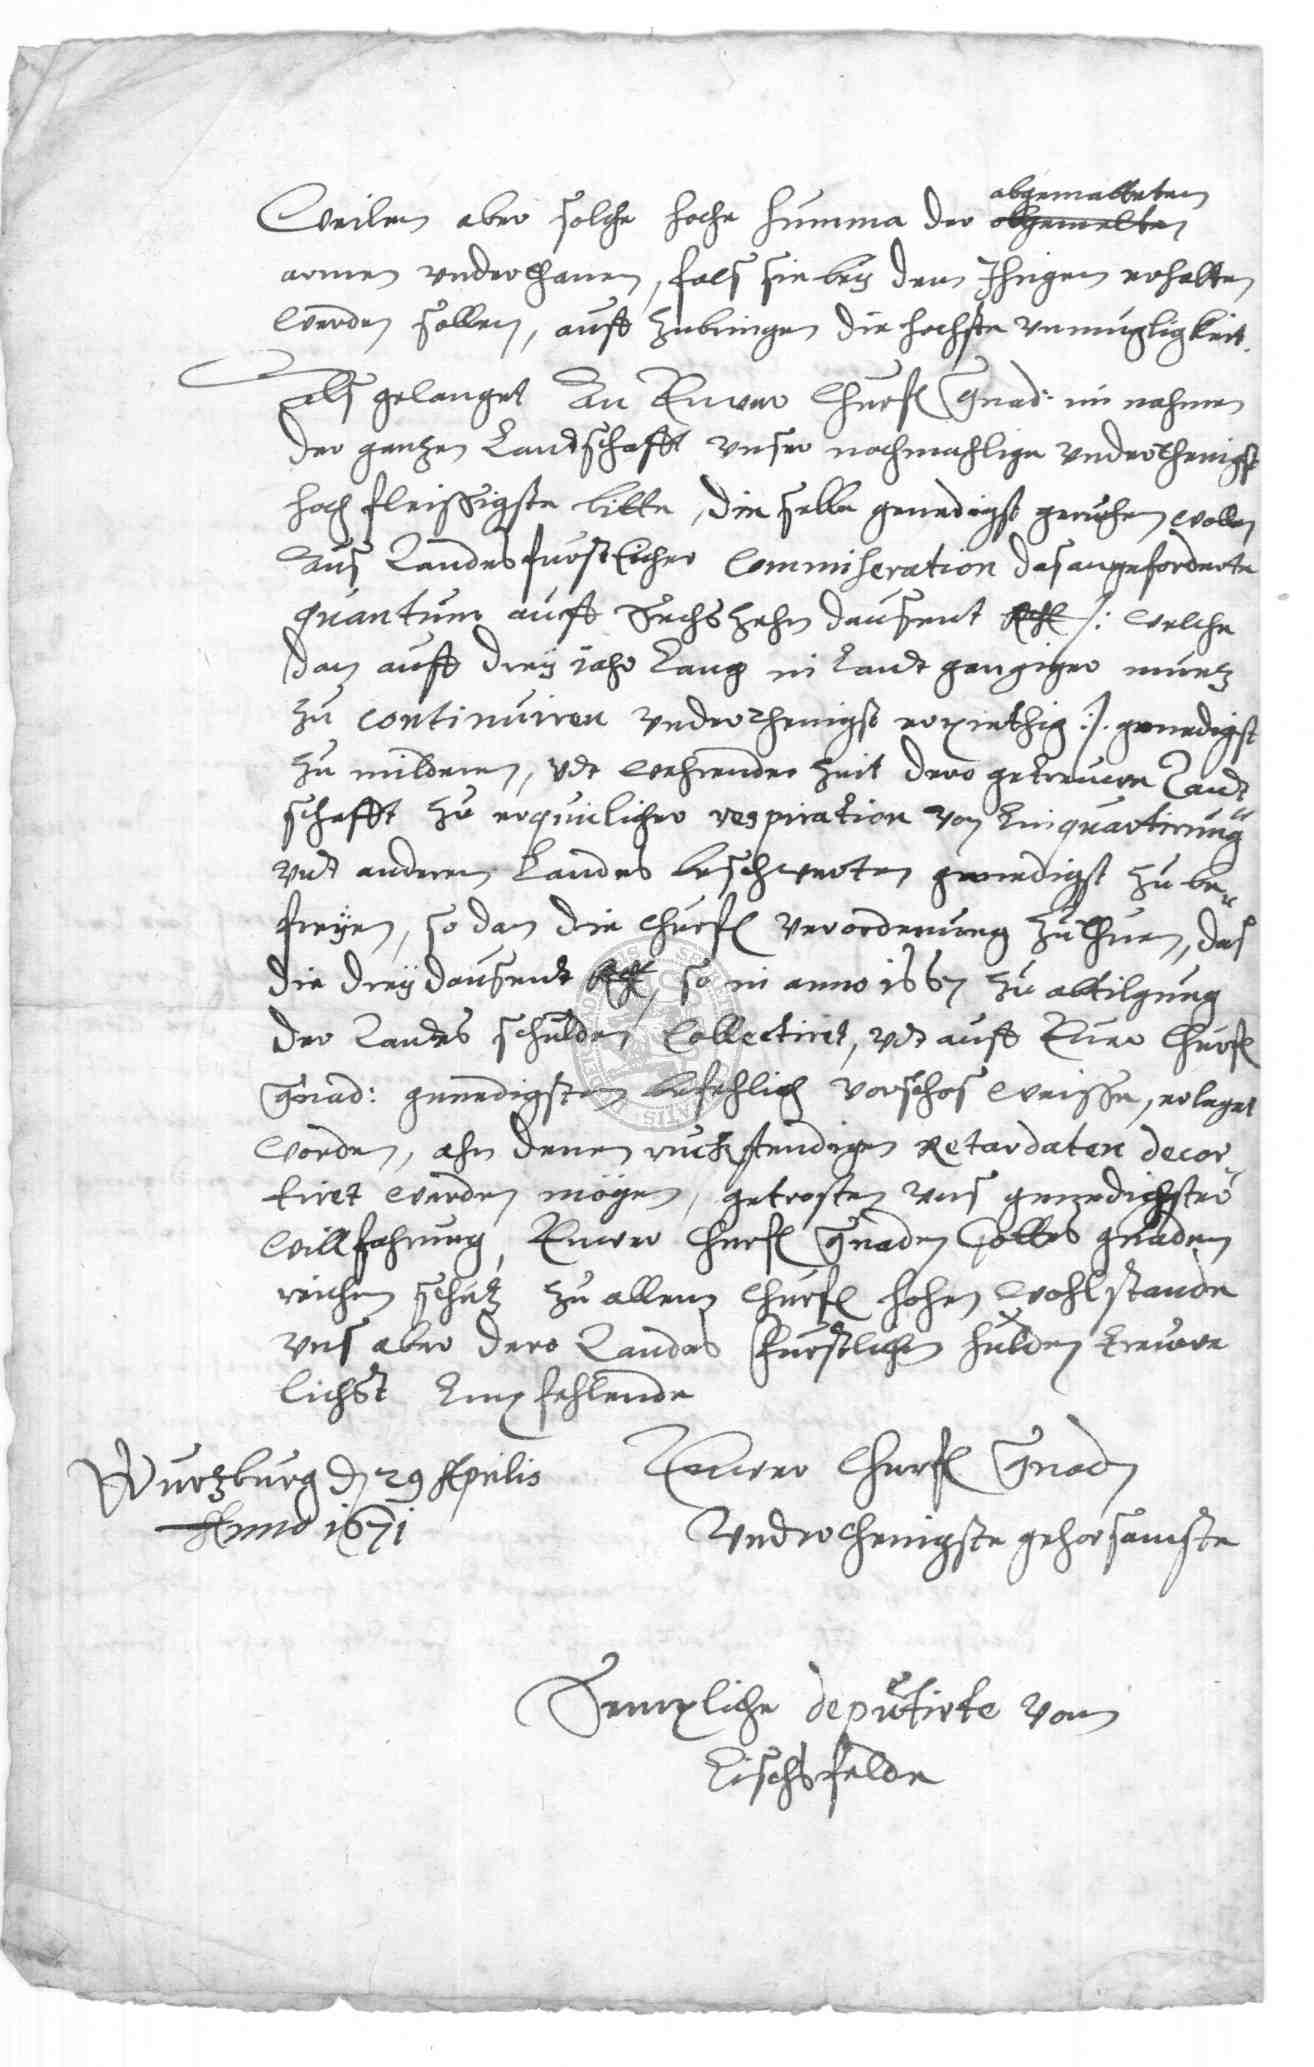 abgematteten
Weilen aber solche hohe summa der abgemelten
armen underthanen, fals sie bey dem Ihrigen erhalten
werden sollen, auff zubringen die hochste unmugligkeit.
Als gelanget An Ewer Churfl Gnad: im nahmen
der gantzen Landtschafft unser nochmahlige underthenigst
hoch fleissigste bitte, die selbe genedigst geruhen wollen
aus Landesfurstlicher Commiseration das angeforderte
quantum auff Sechszehn dausent Rthlr /: welche
dan auff drey iahr lang in landt gengiger muntz
zu continuiren underthenigst erpiethig :/. genedigst
zu milderen, vdt wehrender Zeit dero getreuwe Landt
schafft zu erquilicher respiration von Einquartirung
vndt anderen Landes beschwerten genedigst zu be„
freyen, so dan die Churfl verordenung zu thuen, das
die drey dausendt Rthlr, so in anno 1667 zu abtilgung
der Landes schulden Collectiret, vdt auff Ewer Churfl
Gnad: genedigsten befehlich vorschos weisse, erleget
worden, ahn denen ruckstendigen Retardaten decor„
tiret werden mögen, getrosten uns genedichster
willfahrung, Ewer Churfl Gnaden Gottes gnaden
reichen schutz zu allem Churfl hohen wohlstande
uns aber dero Landes Fürstlichen hulden treuwe
lichst Empfehlende
Wurtzburg d 29 Aprilis
Anno 1671
Ewer Churfl Gnad
Underthenigste gehorsamste
Semptliche deputirte vom
Eischsfelde